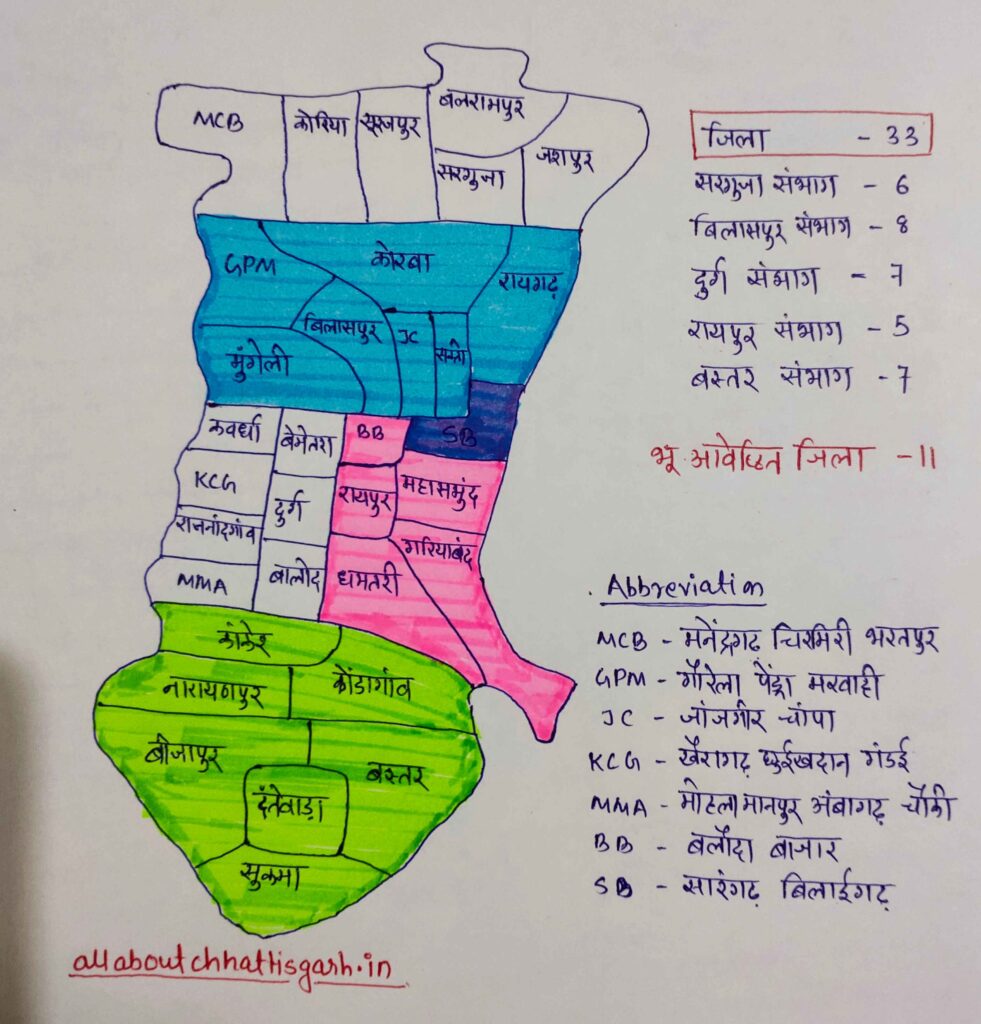 MCB
कोरिया
सूरजपुर
बलरामपुर
सरगुजा
जशपुर
GPM
कोरबा
रायगढ़
बिलासपुर
JC
सक्ती
मुंगेली
कवर्धा
बेमेतरा
BB
SB
KCG
दुर्ग
रायपुर
महासमुंद
राजनांदगांव
गरियाबंद
MMA
बालोद
धमतरी
कांकेर
नारायणपुर
कोंडागांव
बीजापुर
बस्तर
दंतेवाड़ा
सुकमा
allaboutchhattisgarh.in
जिला - 33
सरगुजा संभाग - 6
बिलासपुर संभाग - 8
दुर्ग संभाग - 7
रायपुर संभाग - 5
बस्तर संभाग - 7
भू आवेष्ठित जिला - 11
Abbreviation
MCB - मनेंद्रगढ़ चिरमिरी भरतपुर
GPM - गौरेला पेंड्रा मरवाही
JC - जांजगीर चांपा
KCG - खैरागढ़ छुईखदान गंडई
MMA - मोहला मानपुर अंबागढ़ चौकी
BB - बलौदा बाजार
SB - सारंगढ़ बिलाईगढ़